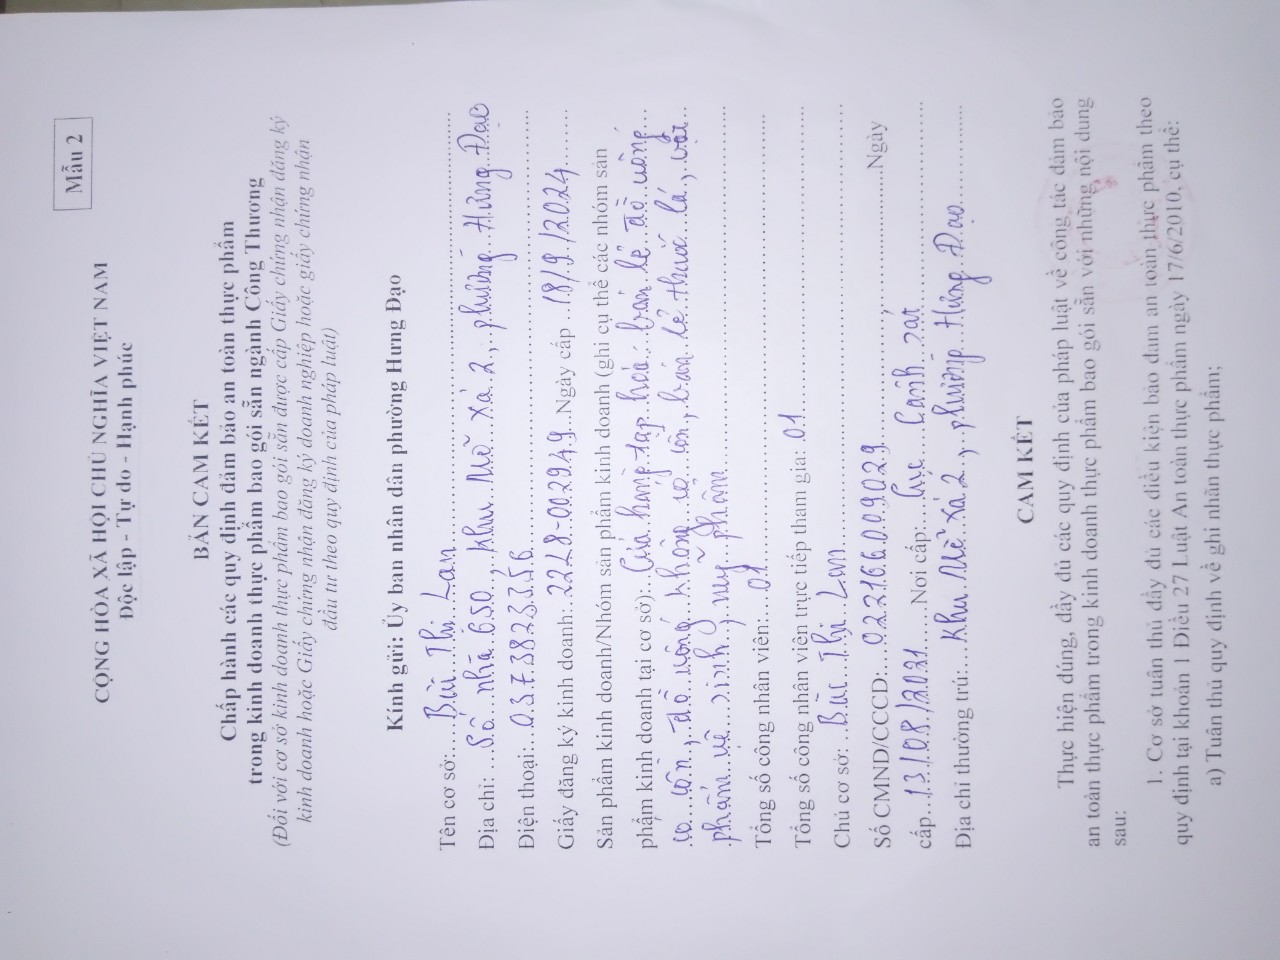 Mẫu 2
CỘNG HÒA XÃ HỘI CHỦ NGHĨA VIỆT NAM
Độc lập - Tự do - Hạnh phúc
BẢN CAM KẾT
Chấp hành các quy định đảm bảo an toàn thực phẩm
trong kinh doanh thực phẩm bao gói sẵn ngành Công Thương
(Đối với cơ sở kinh doanh thực phẩm bao gói sẵn được cấp Giấy chứng nhận đăng ký
kinh doanh hoặc Giấy chứng nhận đăng ký doanh nghiệp hoặc giấy chứng nhận
đầu tư theo quy định của pháp luật)
Kính gửi: Ủy ban nhân dân phường Hưng Đạo
Tên cơ sở: Bùi Thị Lan
Địa chỉ: Số nhà 650, khu Mễ Xá 2, phường Hưng Đạo
Điện thoại: 0373823356
Giấy đăng ký kinh doanh: 2228-002949 Ngày cấp 18/9/2024
Sản phẩm kinh doanh/Nhóm sản phẩm kinh doanh (ghi cụ thể các nhóm sản
phẩm kinh doanh tại cơ sở): Cửa hàng tạp hoá: bán lẻ đồ uống
có cồn, đồ uống không có cồn, bán lẻ thuốc lá,
phẩm vệ sinh, mỹ phẩm
Tổng số công nhân viên: 01
Tổng số công nhân viên trực tiếp tham gia: 01
Chủ cơ sở: Bùi Thị Lan
Số CMND/CCCD: 022166009029, Ngày
cấp 13/08/2021 Nơi cấp: Cục Cảnh sát
Địa chỉ thường trú: Khu Mễ Xá 2, phường Hưng Đạo
CAM KẾT
Thực hiện đúng, đầy đủ các quy định của pháp luật về công tác đảm bảo
an toàn thực phẩm trong kinh doanh thực phẩm bao gói sẵn với những nội dung
sau:
1. Cơ sở tuân thủ đầy đủ các điều kiện bảo đảm an toàn thực phẩm theo
quy định tại khoản 1 Điều 27 Luật An toàn thực phẩm ngày 17/6/2010, cụ thể:
a) Tuân thủ quy định về ghi nhãn thực phẩm;